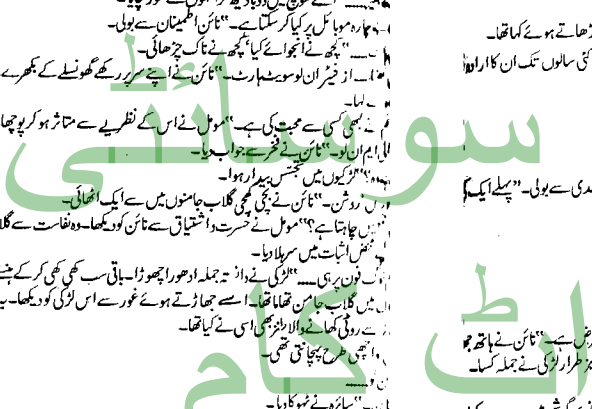 چارہ موبائل پر کیا کر سکتا ہے۔" نائن اطمینان سے بولی۔
" کچھ نے انجوائے کیا، کچھ نے ناک چڑھائی۔
از فیئر ان لو سویٹ ہارٹ۔" نائن نے اپنے سر پر رکھے گھونسلے کے بکھرے
کہا۔
نے کبھی کسی سے محبت کی ہے۔" مومل نے اس کے نظریے سے متاثر ہو کر پوچھا
ایم ان لو۔" نائن نے فخر سے جواب دیا۔
"لڑکیوں میں تجسس بیدار ہوا۔
روشن۔" نائن نے بچی کھچی گلاب جامنوں میں سے ایک اٹھائی۔
چاہتا ہے؟" مومل نے حسرت و اشتیاق سے نائن کو دیکھا۔ وہ نفاست سے گلا
محض اثبات میں سر ہلا دیا۔
فون پر ہی ۔۔۔۔" لڑکی نے دانستہ جملہ ادھورا چھوڑا۔ باقی سب کھی کھی کر کے ہنسنے
میں گلاب جامن تھاما تھا۔ اسے جھاڑتے ہوئے غور سے اس لڑکی کو دیکھا۔ یہ
سے روٹی کھانے والا رانز بھی اسی نے کیا تھا۔
اچھی طرح پہچانتی تھی۔
سائرہ نے ٹہوکا دیا۔
ڑھاتے ہوئے کہا تھا۔
کئی سالوں تک ان کا ارادہ
دی سے بولی۔ "پہلے ایک
رض ہے۔" نائن نے ہاتھ
طرار لڑکی نے جملہ کسا۔
سوسائٹی
ڈاٹ کام